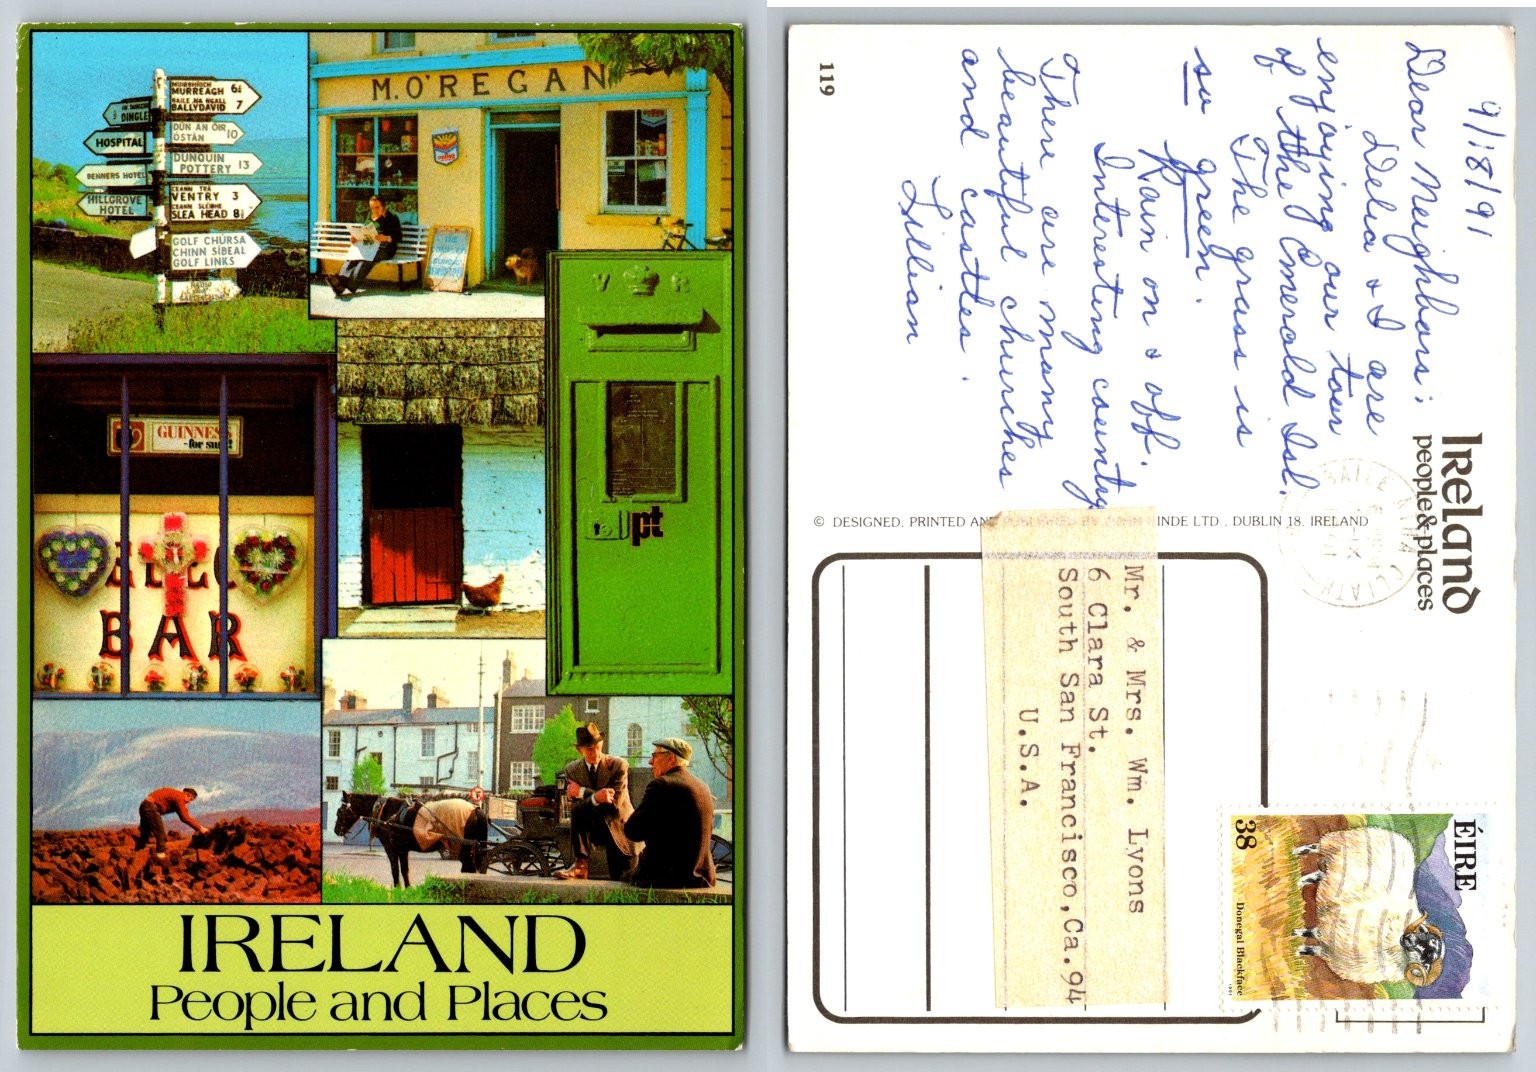 MUIRBHIOCH
MURREAGH 6½
BAILE NA NGALL
BALLYDAVID 7
DINGLE
DÚN AN ÓIR
ÓSTÁN 10
HOSPITAL
DUNQUIN
POTTERY 13
BENNERS HOTEL
CEANN TRÁ
VENTRY 3
CEANN SLÉIBHE
SLEA HEAD 8½
HILLGROVE
HOTEL
GOLF CHÚRSA
CHINN SIBEAL
GOLF LINKS
M. O'REGAN
V R
GUINNESS
-for
BAR
pt
IRELAND
People and Places
119
9/18/91
Dear Neighbors:
Delia & I are
enjoying our tour
of the Emerald Isl.
The grass is
so green.
Rain on & off.
Interesting country
There are many
beautiful churches
and castles.
Lillian
IRELAND
people & places
© DESIGNED, PRINTED AND PUBLISHED BY JOHN HINDE LTD., DUBLIN 18, IRELAND
BAILE ÁTHA CLIATH
Mr. & Mrs. Wm. Lyons
6 Clara St.
South San Francisco, Ca. 94
U.S.A.
ÉIRE
38
Donegal Blackface
1991